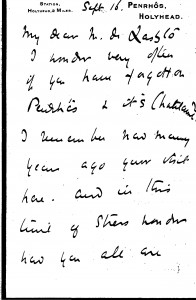 Station,
Holyhead, 2 Miles.
Sept. 16.
Penrhôs,
Holyhead.
My dear M. de Laszlo
I wonder very often
if you have forgotten
Penrhôs & its
I remember how many
years ago your visit
here. and in this
time of Stress wonder
how you all are